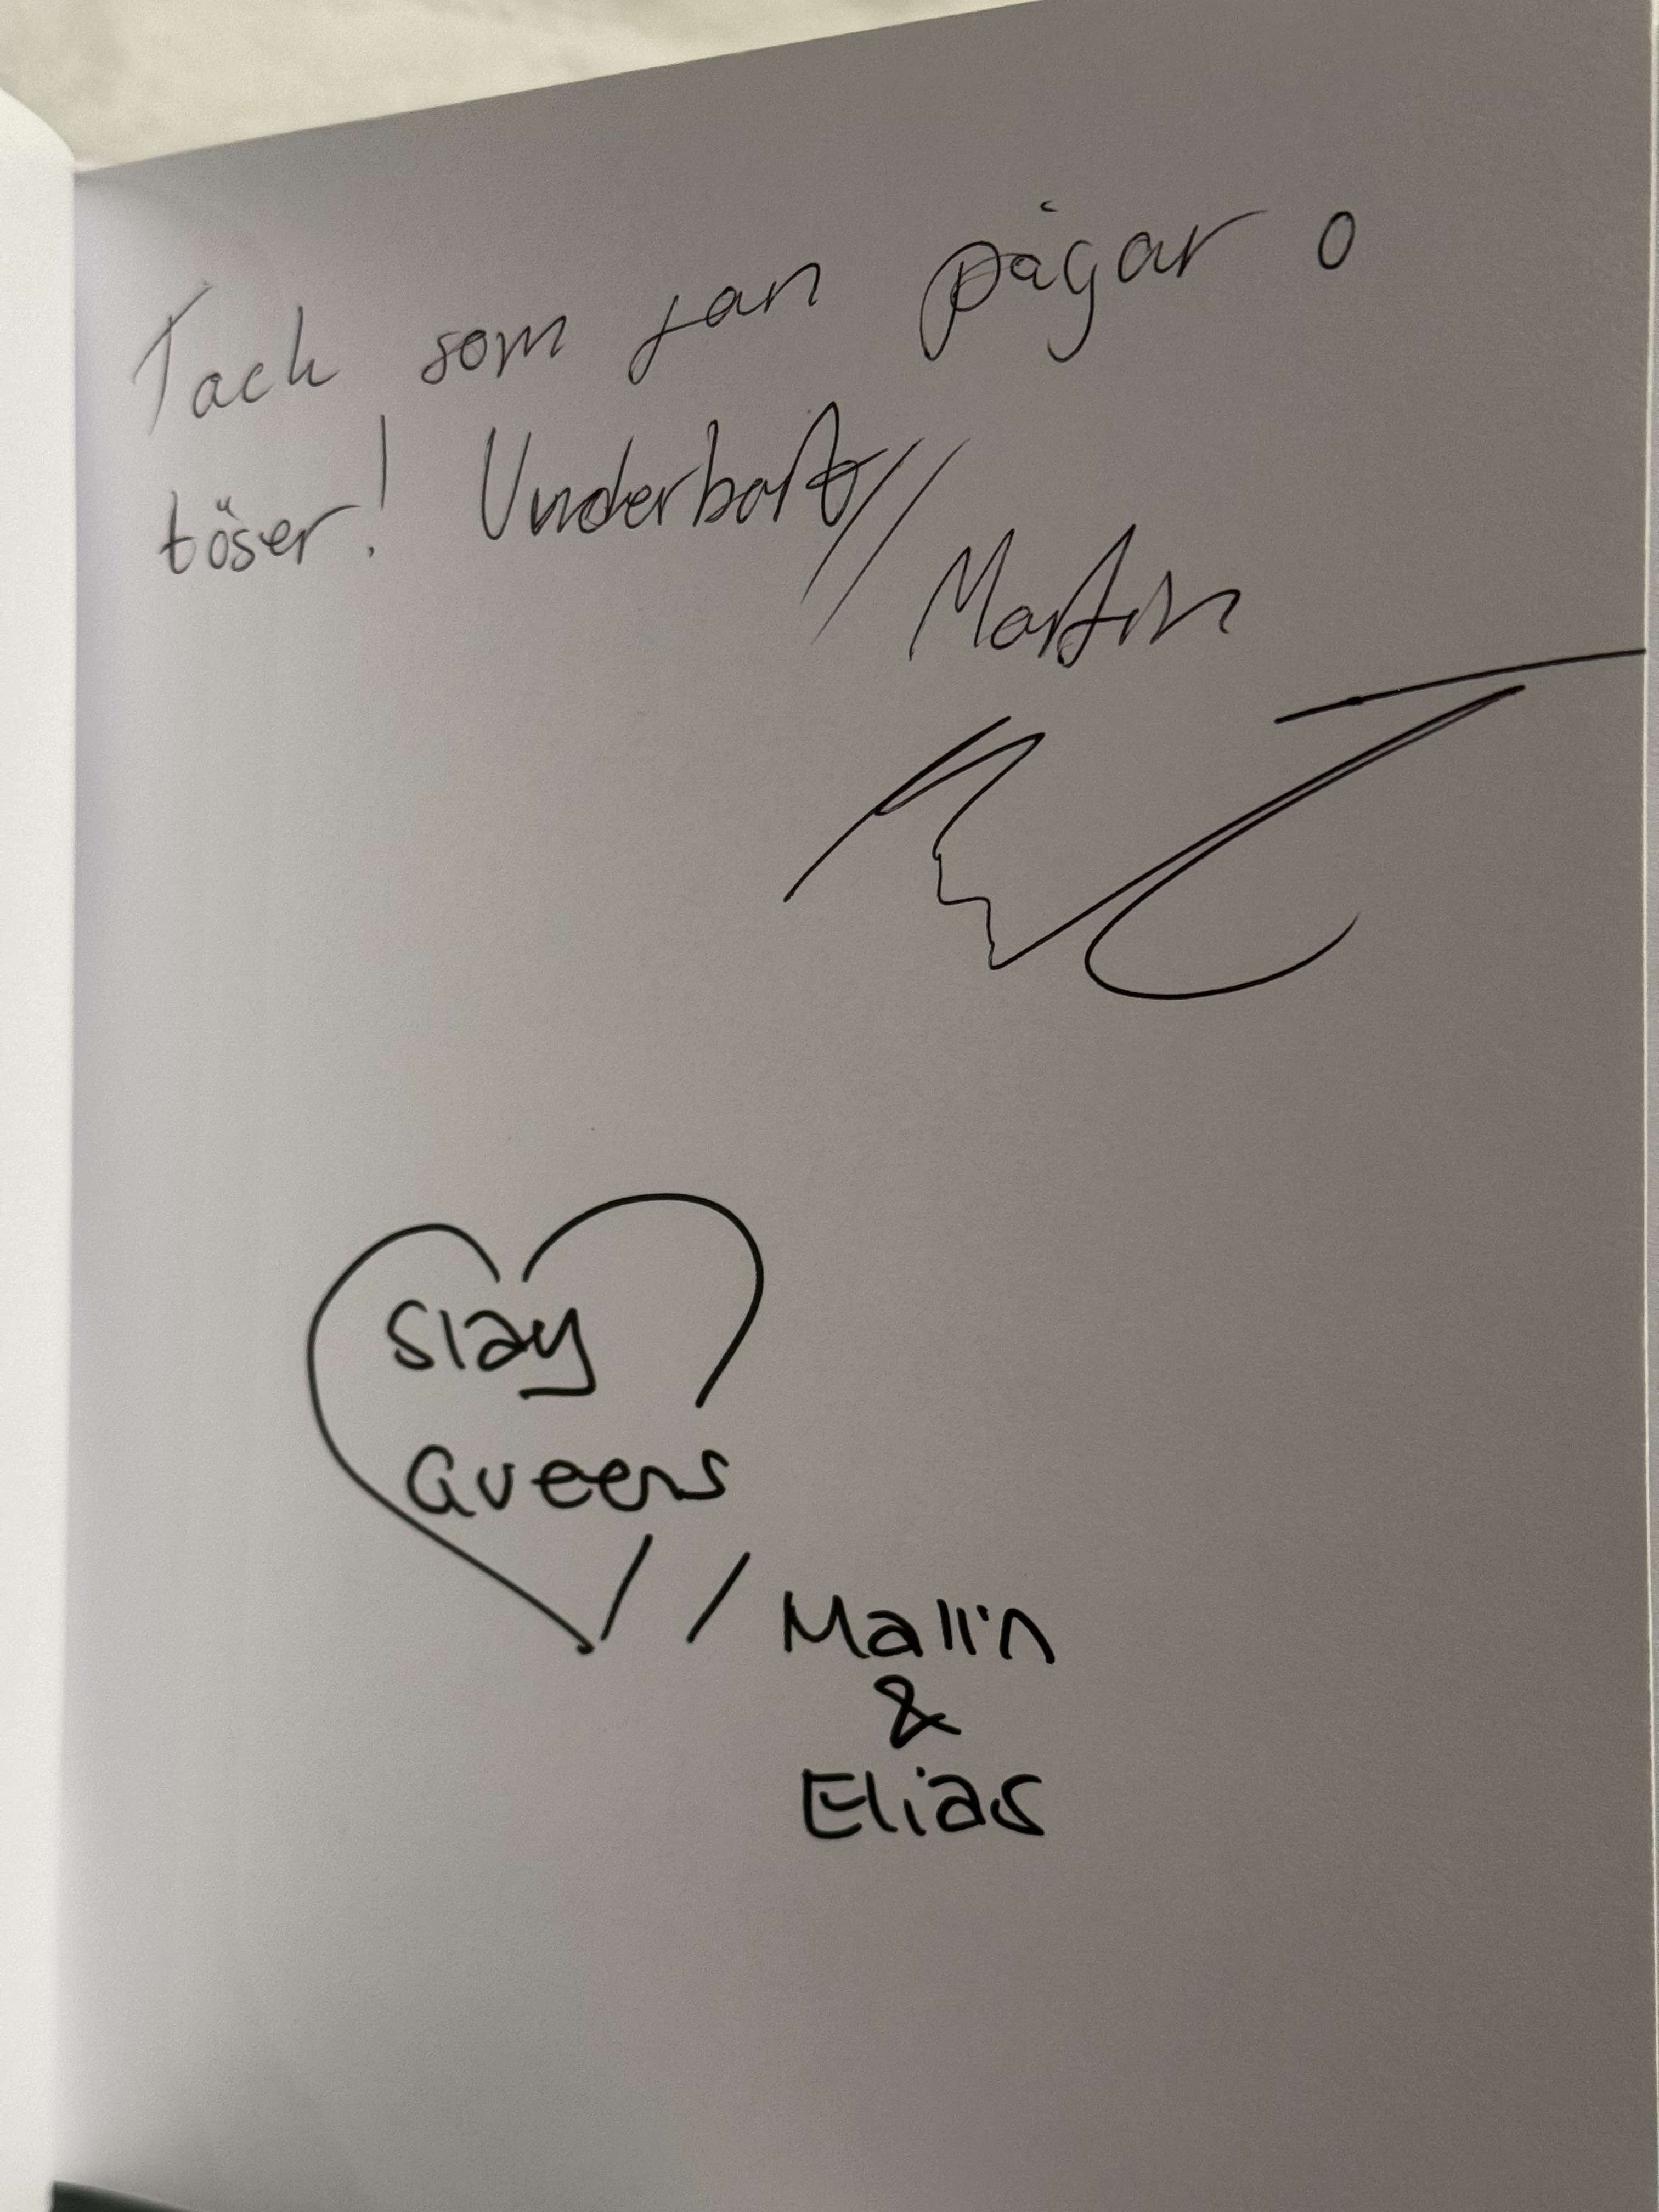 Tack som fan pågar o
töser! Underbart//
Martin
Slay
Queens
// Malin
&
Elias